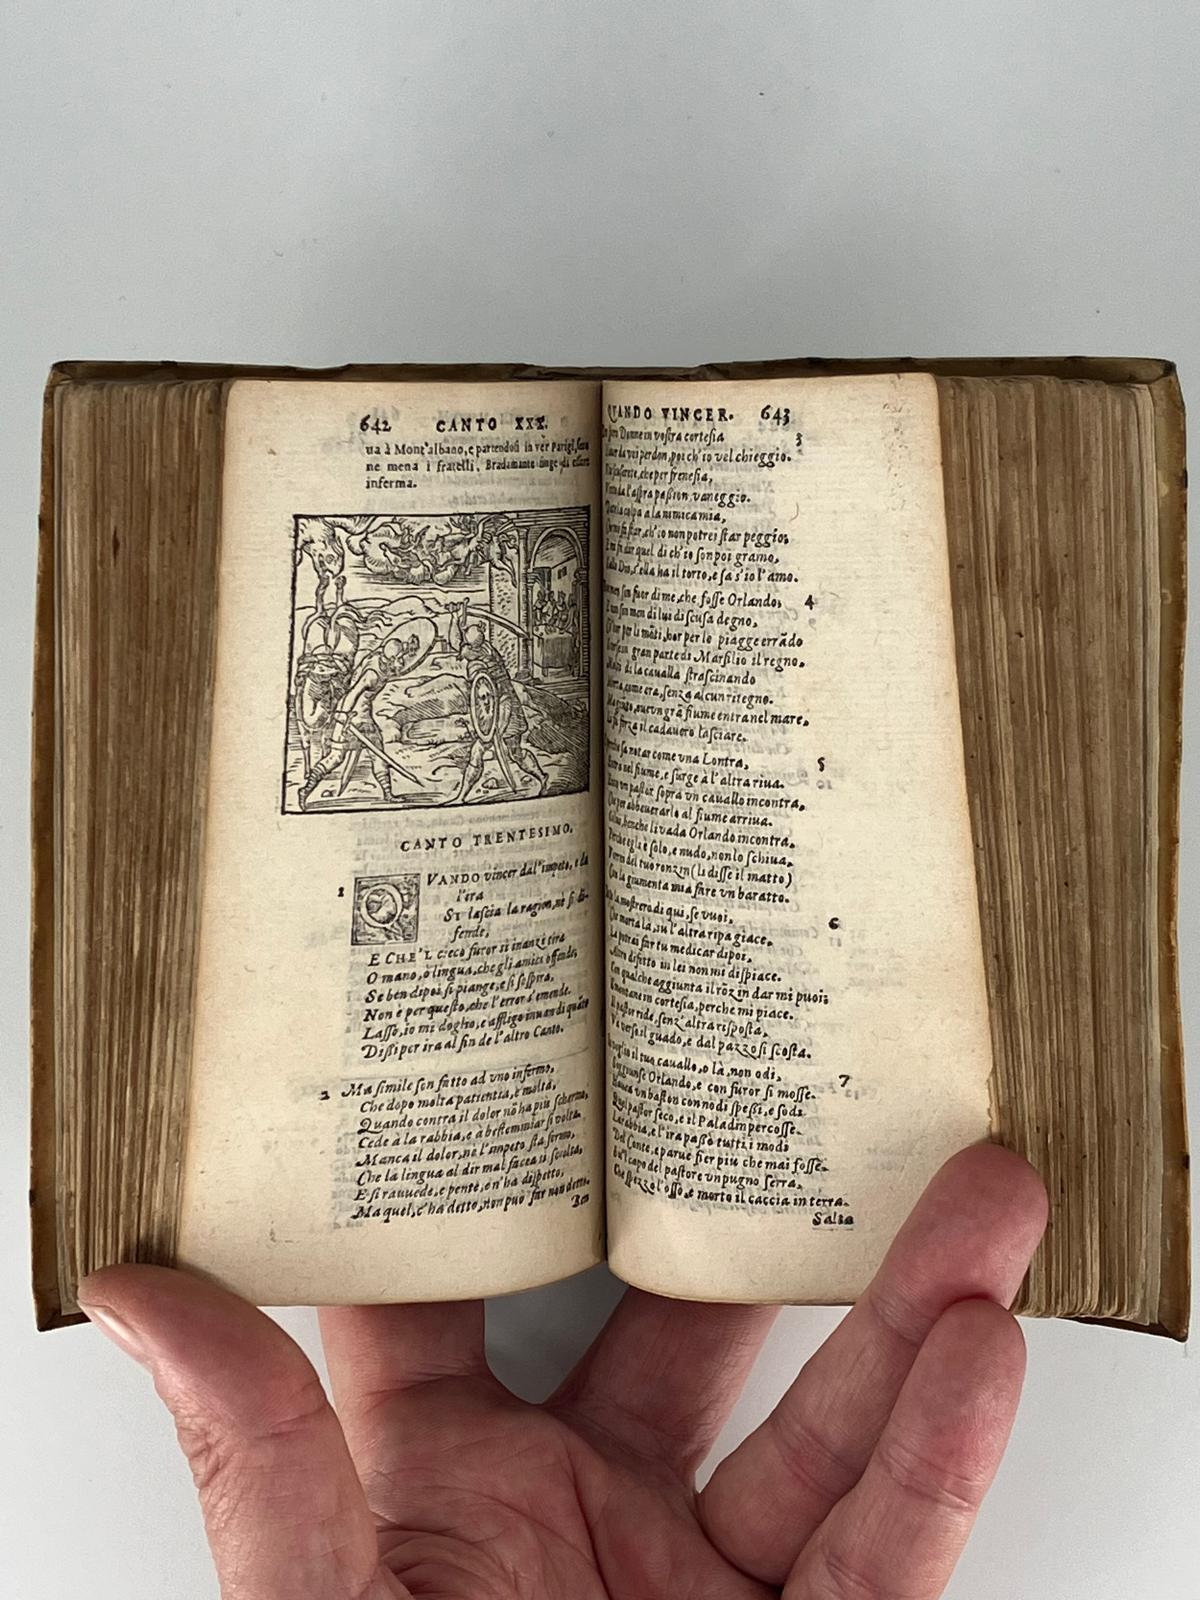 642 CANTO XXX.
ua à Mont'albano, e partendosi in ver Parigi, seco
ne mena i fratelli, Bradamante finge di essere
inferma.
CANTO TRENTESIMO.
1
QVANDO vincer dal'impeto, e da
l'ira
SI lascia la ragion, nè si di-
fende,
E CHE'L cieco furor si inanzi tira
O mano, ò lingua, che gli amici offende,
Se ben dipoi si piange, e si sospira,
Non è per questo, che l'error s'emende.
Lasso, io mi doglio, e affligo inuan di quãto
Dissi per ira al fin de l'altro Canto.
2 Ma simile son fatto ad vno infermo,
Che dopo molta patientia, e molta,
Quando contra il dolor nõ ha più schermo,
Cede à la rabbia, e à bestemmiar si volta.
Manca il dolor, nè l'impeto sta fermo,
Che la lingua al dir mal facea sì sciolta,
E si rauuede, e pente, e n'ha dispetto,
Ma quel, c'ha detto, non può far non detto.
Ben
QVANDO VINCER. 643
Donne in vostra cortesia 3
da voi perdon, poi ch'io vel chieggio.
che per frenesia,
da l'aspra passion vaneggio.
la colpa a la nimica mia,
star, ch'io non potrei star peggio,
E mi fa dir quel, di ch'io son poi gramo,
Dio, s'ella ha il torto, e sa s'io l'amo.
men son fuor di me, che fosse Orlando, 4
son men di lui di scusa degno,
per li mõti, hor per le piagge errãdo
in gran parte di Marsilio il regno,
di la caualla strascinando
come era, senza alcun ritegno.
Ma giũto, oue vn grã fiume entra nel mare,
forza il cadauero lasciare.
sa notar come vna Lontra, 5
nel fiume, e surge à l'altra riua.
vn pastor sopra vn cauallo incontra,
Che per abbeuerarlo al fiume arriua.
benche li vada Orlando incontra,
Perche egli è solo, e nudo, non lo schiua,
del tuo ronzin (li disse il matto)
Con la giumenta mia fare vn baratto.
la mostrero di qui, se vuoi, 6
Che morta là, su l'altra ripa giace,
La potrai far tu medicar dipoi,
Altro difetto in lei non mi dispiace.
Con qualche aggiunta il rõzin dar mi puoi:
Smontane in cortesia, perche mi piace.
Il pastor ride, senz'altra risposta,
Va verso il guado, e dal pazzo si scosta.
voglio il tuo cauallo, o là, non odi, 7
Soggiunse Orlando, e con furor si mosse.
Hauea vn baston con nodi spessi, e sodi
Quel pastor seco, e il Paladin percosse.
La rabbia, e l'ira passò tutti i modi
Del Conte, e parue fier più che mai fosse.
Su'l capo del pastore vn pugno serra,
Che spezzo l'osso, e morto il caccia in terra.
Salta